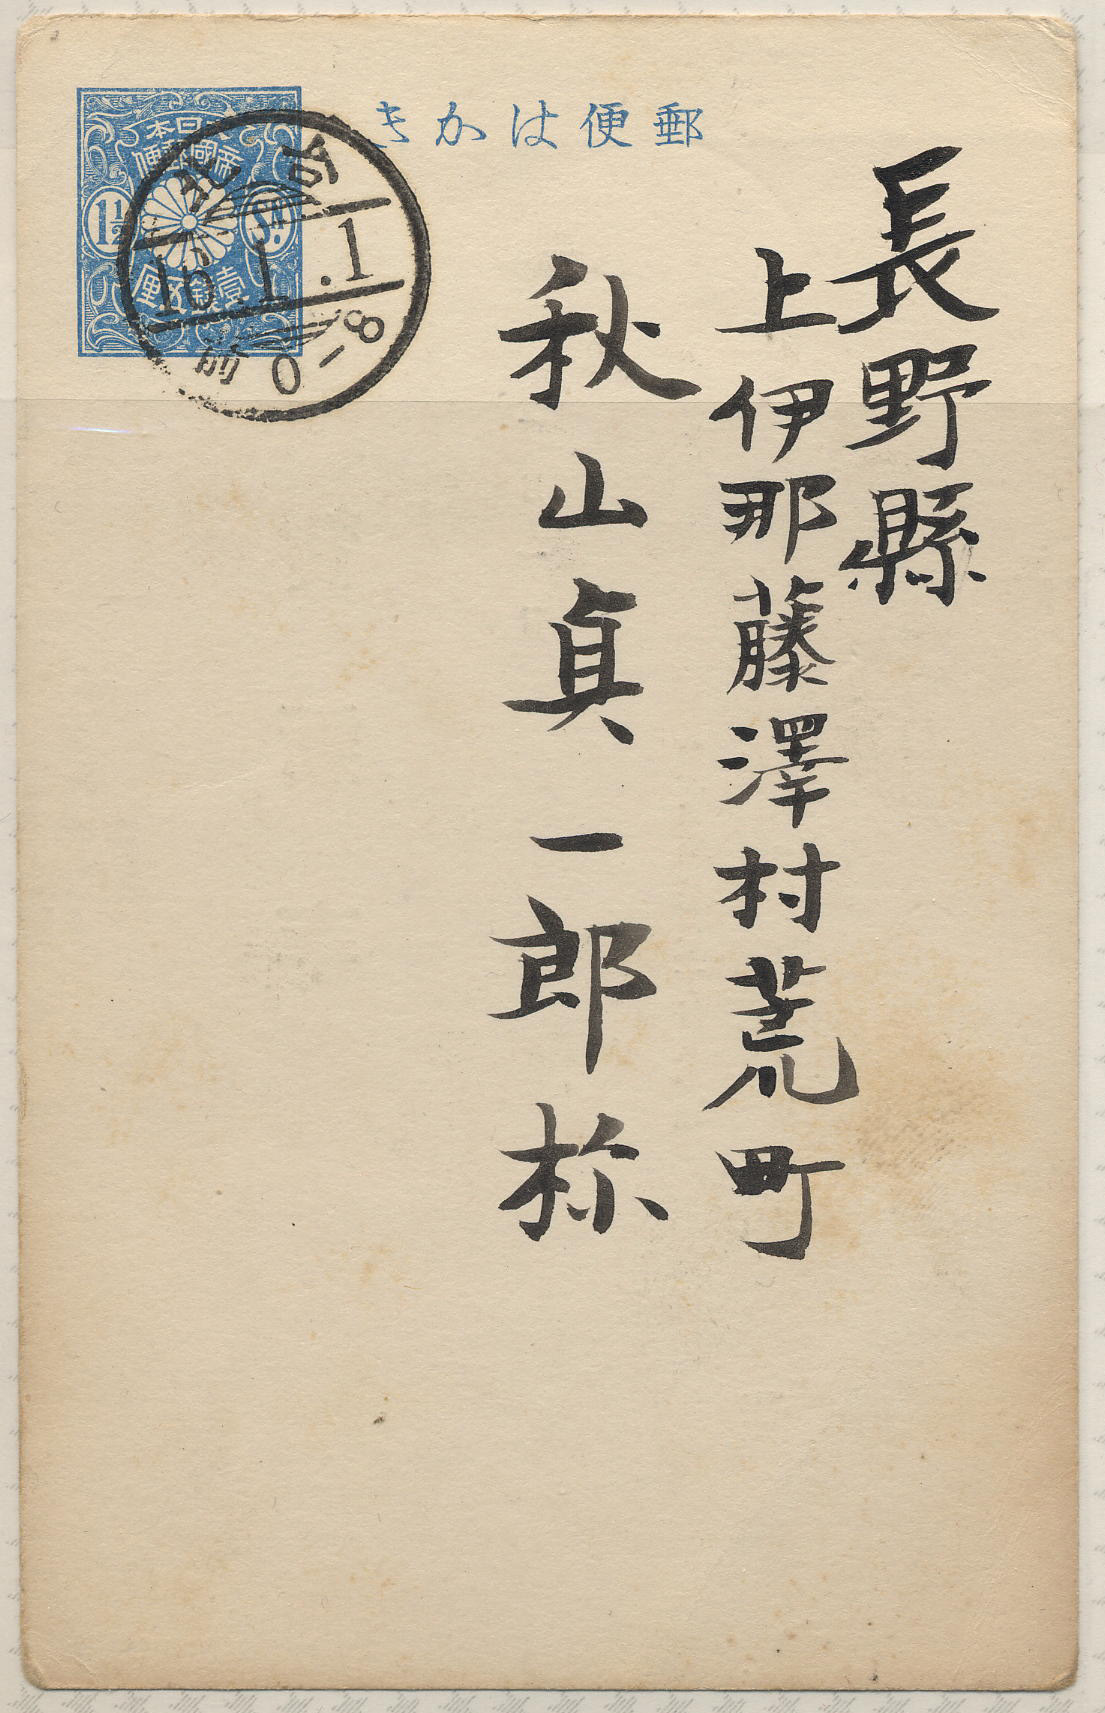 郵便はかき
大日本
帝國郵便
1½
Sn.
壹錢五厘
16.1.1
前0-8
長野縣
上伊那藤澤村荒町
秋山真一郎様